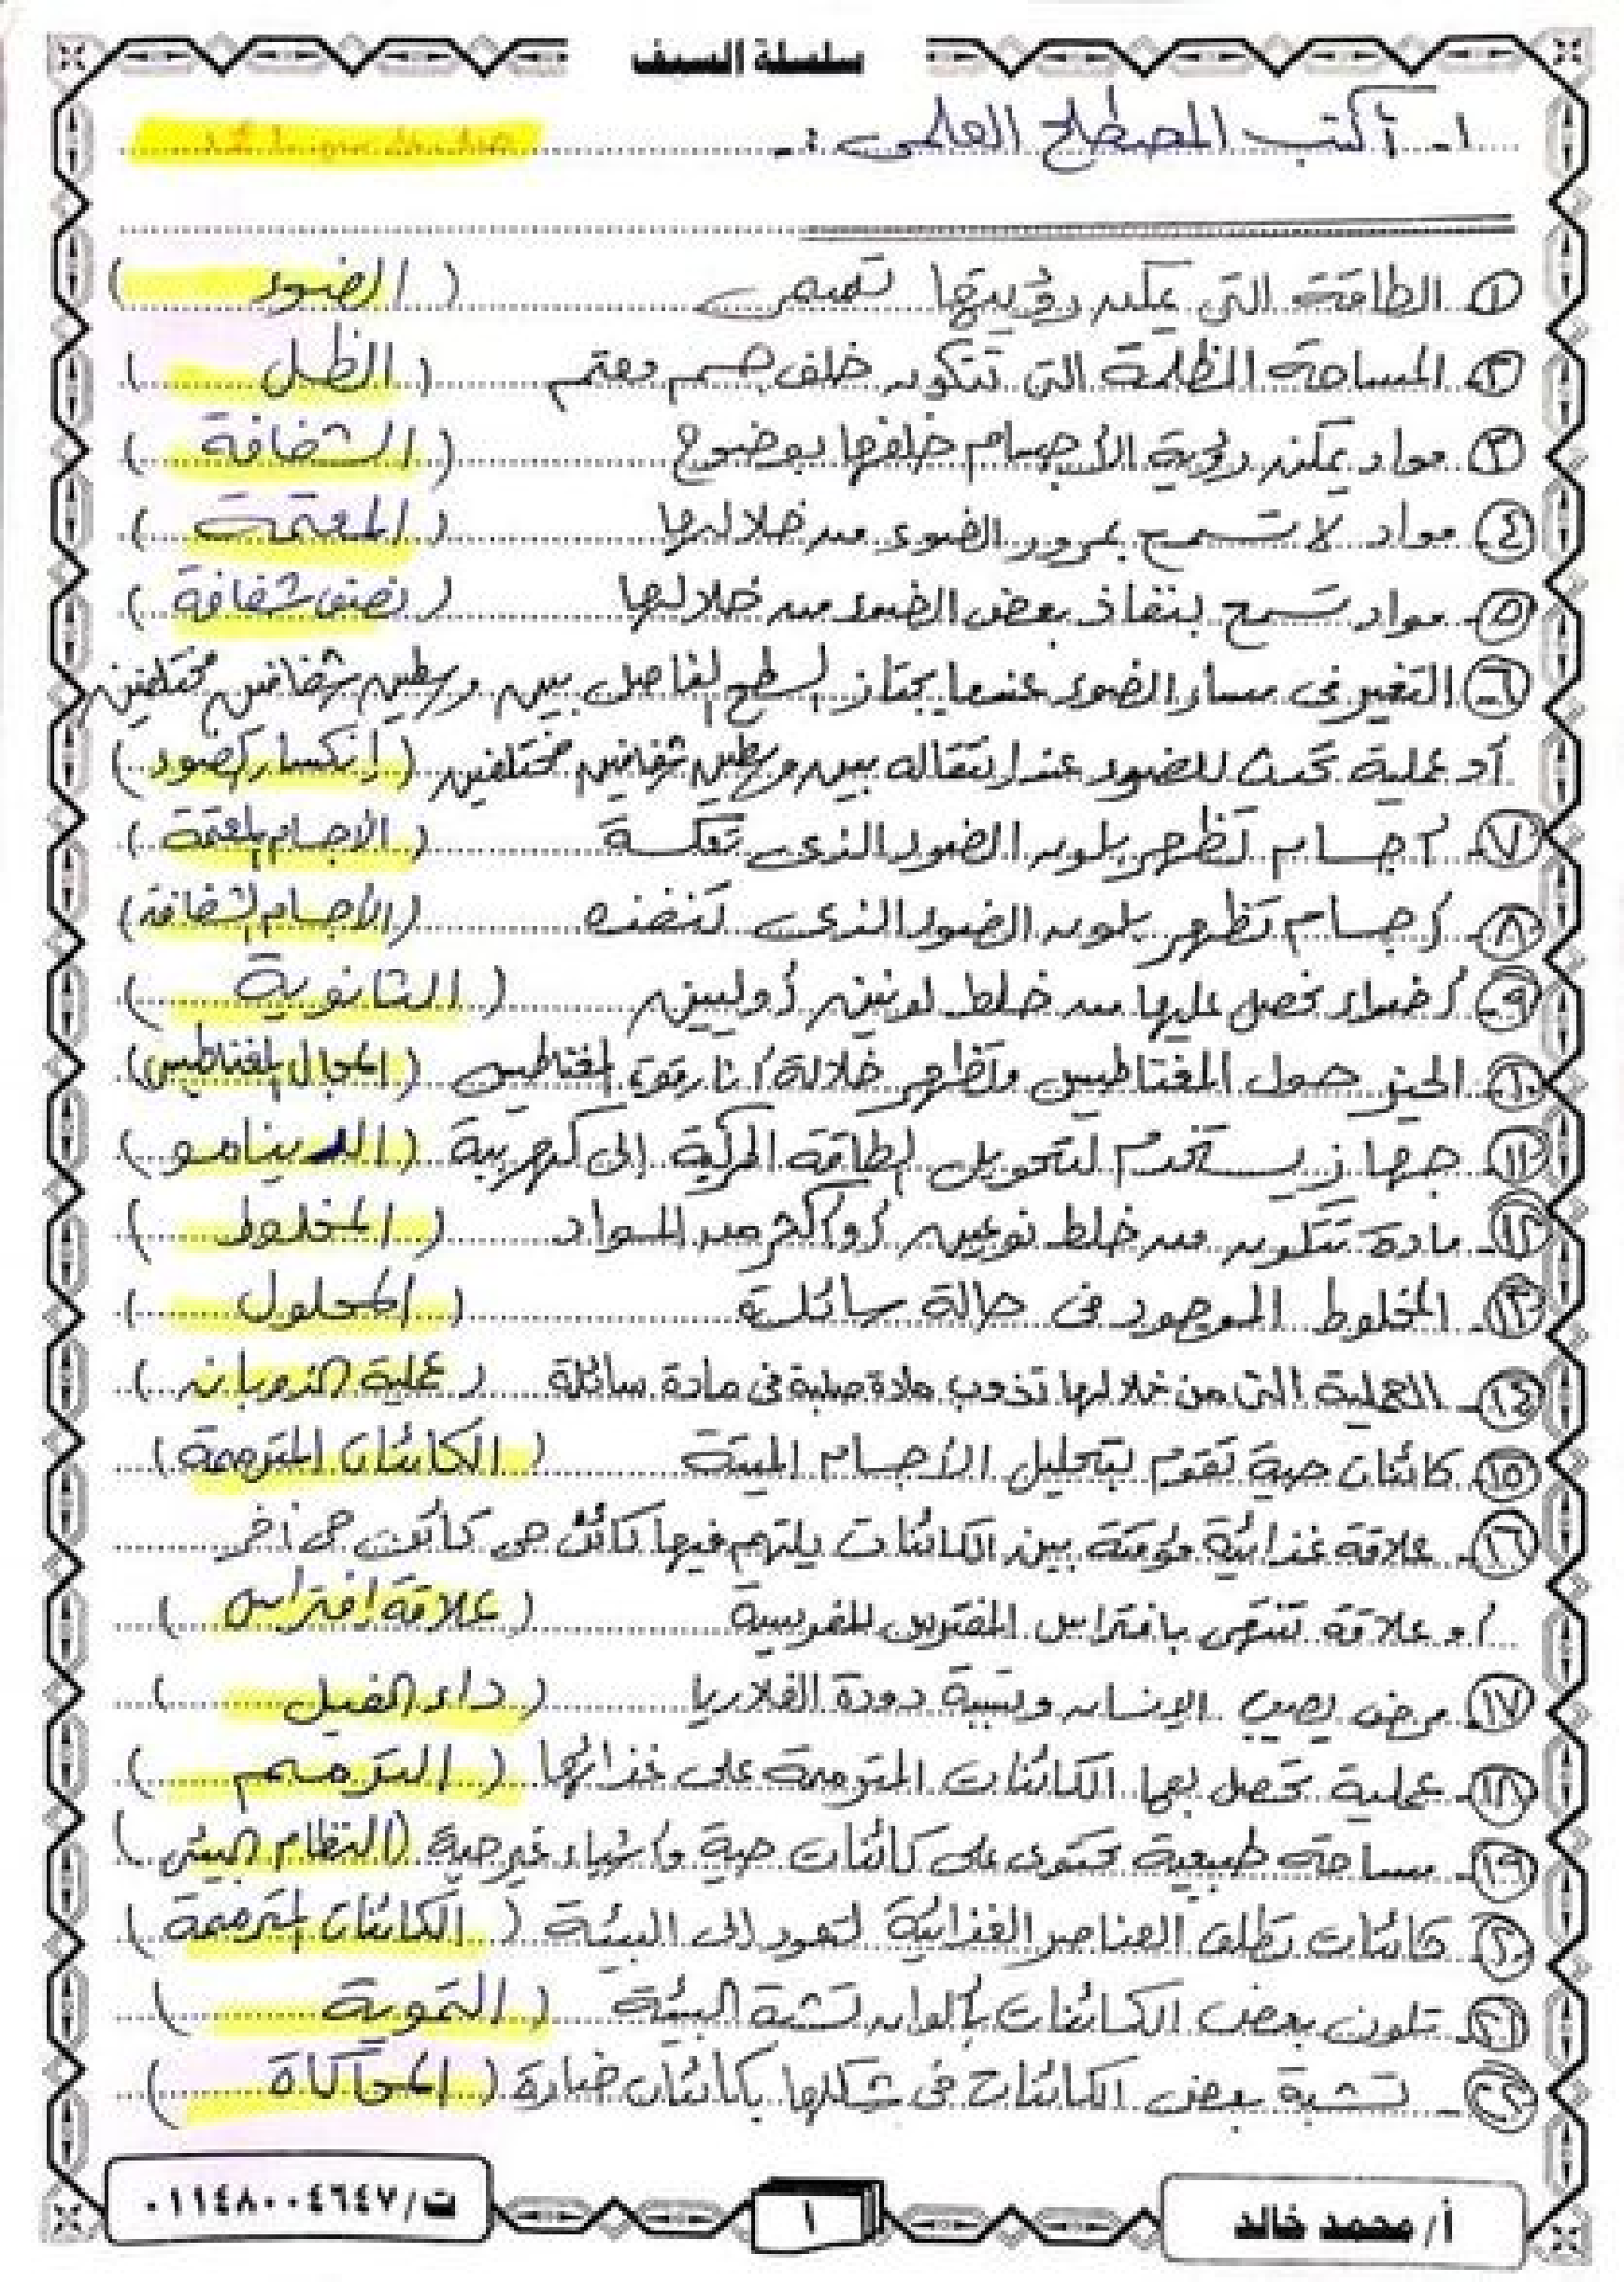 سلسلة السيف
١- أكتب المصطلح العلمى :-
١- الطاقة التى يمكن رؤيتها تسمى ( الضوء )
٢- المساحة المظلمة التى تتكون خلف جسم معتم ( الظل )
٣- مواد يمكن رؤية الأجسام خلفها بوضوح ( الشفافة )
٤- مواد لا تسمح بمرور الضوء من خلالها ( المعتمة )
٥- مواد تسمح بنفاذ بعض الضوء من خلالها ( نصف شفافة )
٦- التغير فى مسار الضوء عندما يجتاز السطح الفاصل بين وسطين شفافين مختلفين
أو عملية تحدث للضوء عند انتقاله بين وسطين شفافين مختلفين ( انكسار الضوء )
٧- أجسام تظهر بلون الضوء الذى تعكسة ( الاجسام المعتمة )
٨- أجسام تظهر بلون الضوء الذى تنفذه ( الأجسام الشفافة )
٩- أضواء نحصل عليها من خلط لونين أوليين ( الثانوية )
١٠- الحيز حول المغناطيس وتظهر خلالة أثار قوة المغناطيس ( المجال المغناطيسى )
١١- جهاز يستخدم لتحويل الطاقة الحركية إلى كهربية ( الدينامو )
١٢- مادة تتكون من خلط نوعين أو أكثر من المواد ( المخلوط )
١٣- المخلوط الموجود فى حالة سائلة ( المحلول )
١٤- العملية التى من خلالها تذوب مادة صلبة فى مادة سائلة ( عملية الذوبان )
١٥- كائنات حية تقوم بتحليل الأجسام الميتة ( الكائنات المترممة )
١٦- علاقة غذائية مؤقتة بين الكائنات يلتهم فيها كائن حى كائن حى أخر
أو علاقة تنتهى بافتراس المفترس للفريسة ( علاقة افتراس )
١٧- مرض يصيب الإنسان وتسببة دودة الفلاريا ( داء الفيل )
١٨- عملية تحصل بها الكائنات المترممة على غذائها ( الترمم )
١٩- مساحة طبيعية تحتوى على كائنات حية وأشياء غير حية ( النظام البيئى )
٢٠- كائنات تطلق العناصر الغذائية لتعود إلى البيئة ( الكائنات المترممة )
٢١- تلون بعض الكائنات بألوان تشبة البيئة ( التموية )
٢٢- تشبة بعض الكائنات فى شكلها بكائنات ضارة ( المحاكاة )
أ/ محمد خالد
١
ت/ ٠١١٤٨٠٠٤٦٤٧